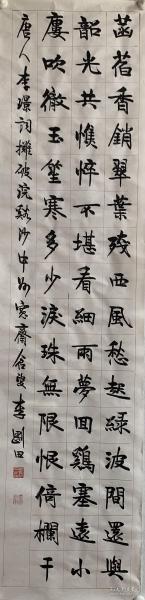 菡萏香銷翠葉殘西風愁起綠波間還與
韶光共憔悴不堪看細雨夢回鷄塞遠小
廔吹徹玉笙寒多少淚珠無限恨倚欄干
唐人李璟詞攤破浣谿沙中州寬齋李劉田